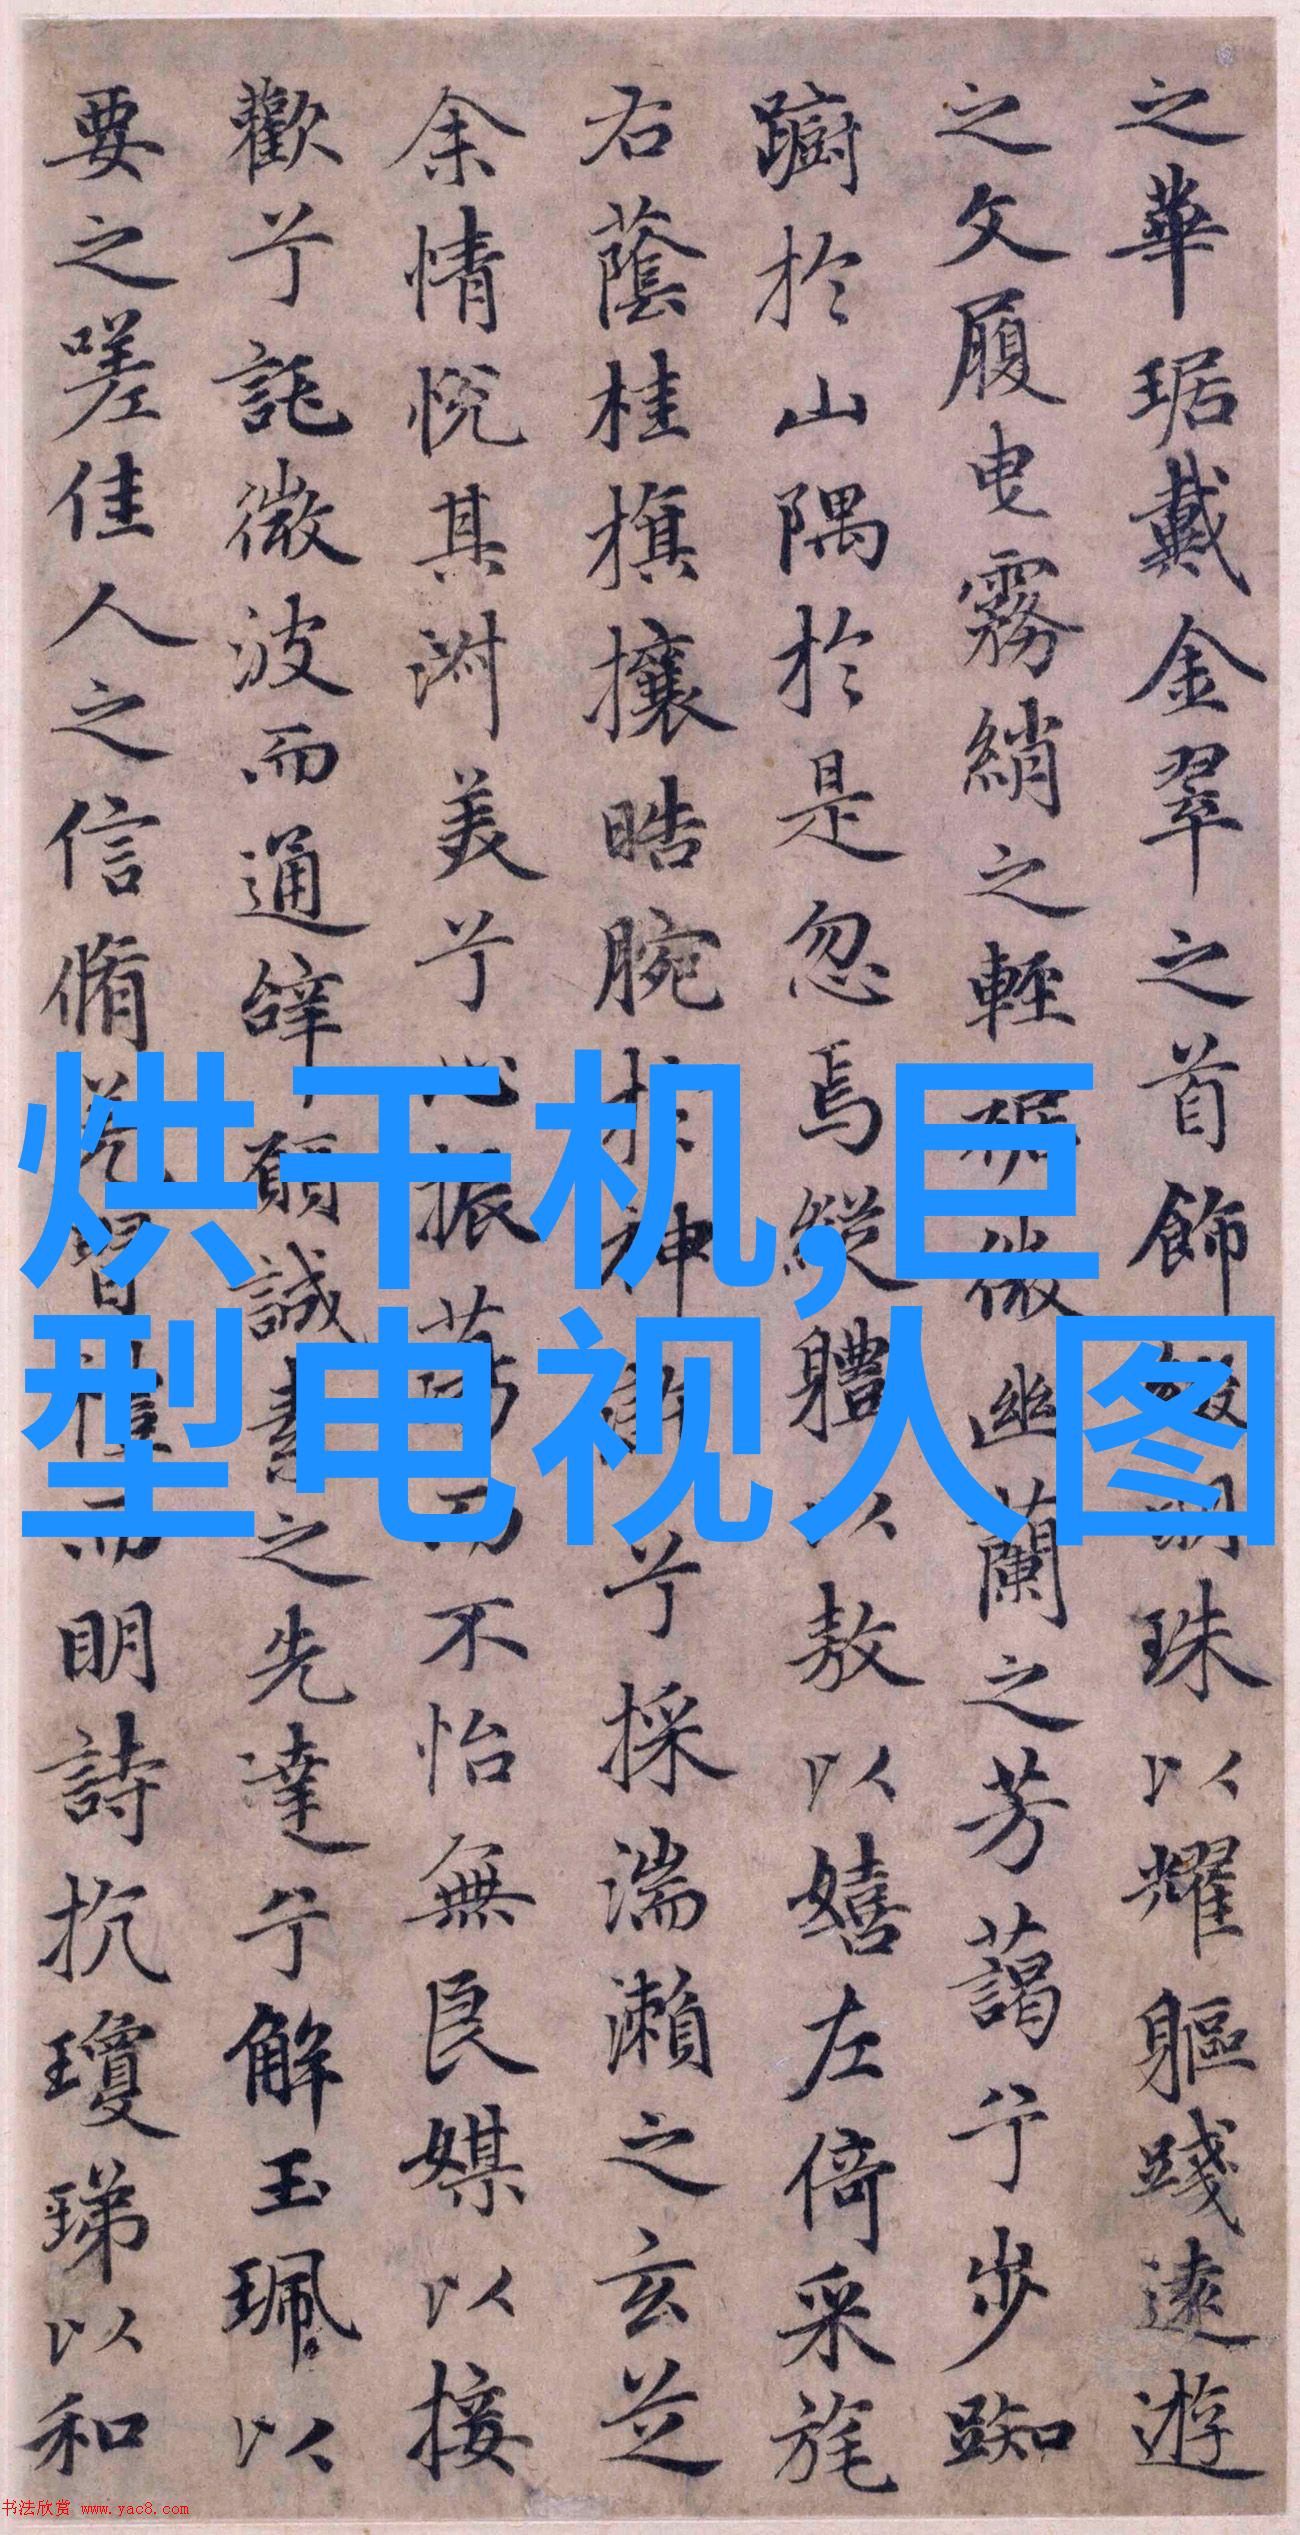 之華琚戴金翠之首飾綴明珠以耀軀踐遠遊
之文履曳霧綃之輕裾微幽蘭之芳藹兮步踟
躕於山隅於是忽焉縱體以敖以嬉左倚采旄
右蔭桂旗攘晧腕於神滸兮採湍瀨之玄芝
余情悅其淑美兮心振蕩而不怡無良媒以接
歡兮託微波而通辭願誠素之先達兮解玉珮以
要之嗟佳人之信脩羌習禮而明詩抗瓊珶以和
烘干机,巨
型电视人图
书法欣赏 www.yac8.com